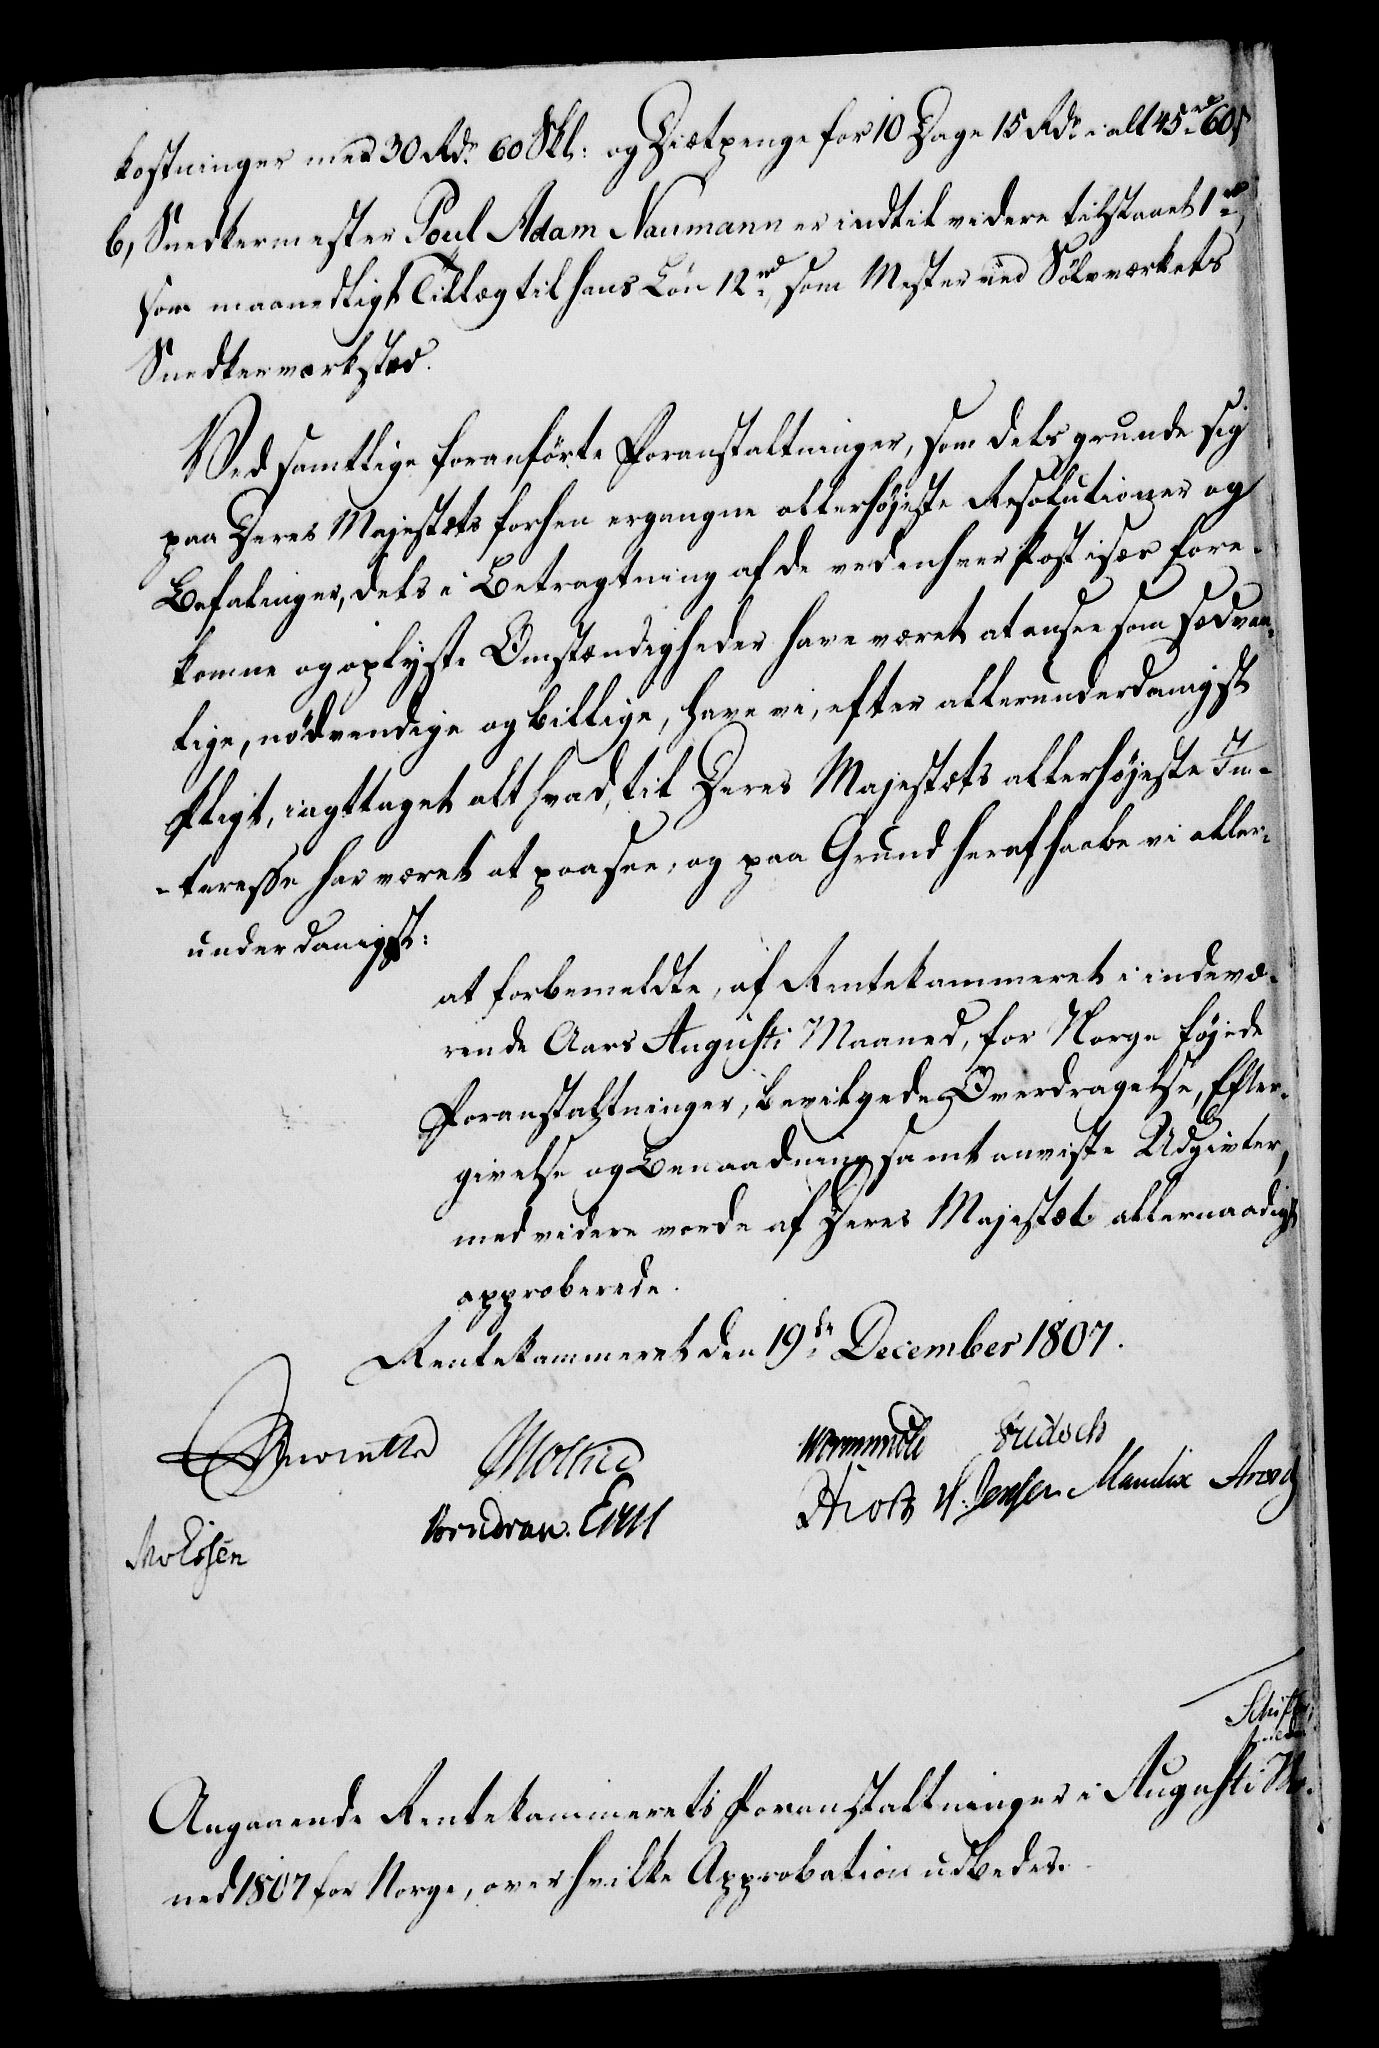 kostninger med 30 Rdr 60 Skl: og Diætpenge for 10 Dage 15 Rdr i alt 45 rd 60 s
6, Snedkermester Poul Adam Naumann er indtil videre tilstaaet 1 rd,
som maanedligt Tillæg til hans Lön 12 rd, som Mester ved Sölvværkets
Snedkerværksted.
Ved samtlige foranförte Foranstaltninger, som dels grunde sig
paa Deres Majestæts forhen ergangne allerhöjeste Resolutioner og
Befalinger, dels i Betragtning af de ved enhver Post især fore-
komne og oplyste Omstændigheder have været at ansee som sædvan-
lige, nödvendige og billige, have vi, efter allerunderdanigst
Pligt, iagttaget alt hvad, til Deres Majestæts allerhöjeste In-
-teresse har været at paasee, og paa Grund heraf haabe vi aller-
underdanigst:
at forbemeldte, af Rentekammeret i indevæ-
rende Aars Augusti Maaned, for Norge föjede
Foranstaltninger, bevilgede Overdragelse, Efter-
givelse og Benaadning samt anviste Udgivter,
med videre vorde af Deres Majestæt allernaadigst
approberede.
Rentekammeret den 19de December 1807.
Wormskiold
H. Jensen Mandix
Vendran.
Angaaende Rentekammerets Foranstaltninger i Augusti Ma-
ned 1807 for Norge, over hvilke Approbation udbedes.